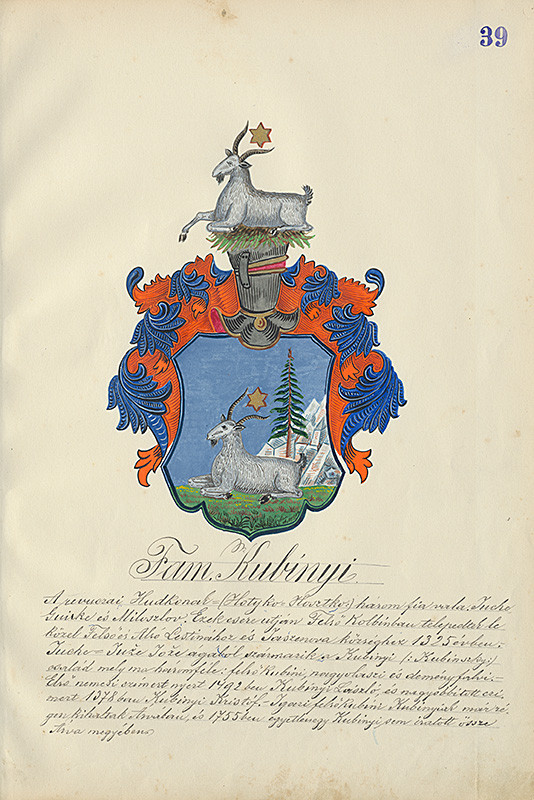 39
Fam. Kubínyi
A revucsai Hudkonak = (Hotyko-Hosztko) három fia vala: Jucho
és Miloszlov. Ezek csere utján Felső Kolbinban telepedtek le
közel Felső és Alsó Lestinához és Jaszenova községhez 1325 évben.
Jucho = Juże Jeże ágából származik a Kubínyi /: Kubinszky :/
család mely ma háromféle: felső kubini, nagyolaszi és deményfalvi –
Első nemesi czímert nyert 1492 ben Kubínyi László, és nagyobbitott czí
mert 1578 ban Kubínyi Kristóf. Igazi felsőkubini Kubínyiak már ré,
gen kihaltak Árvában, és 1755 ben egyetlenegy Kubínyi sem iratott össze
Árva megyében,